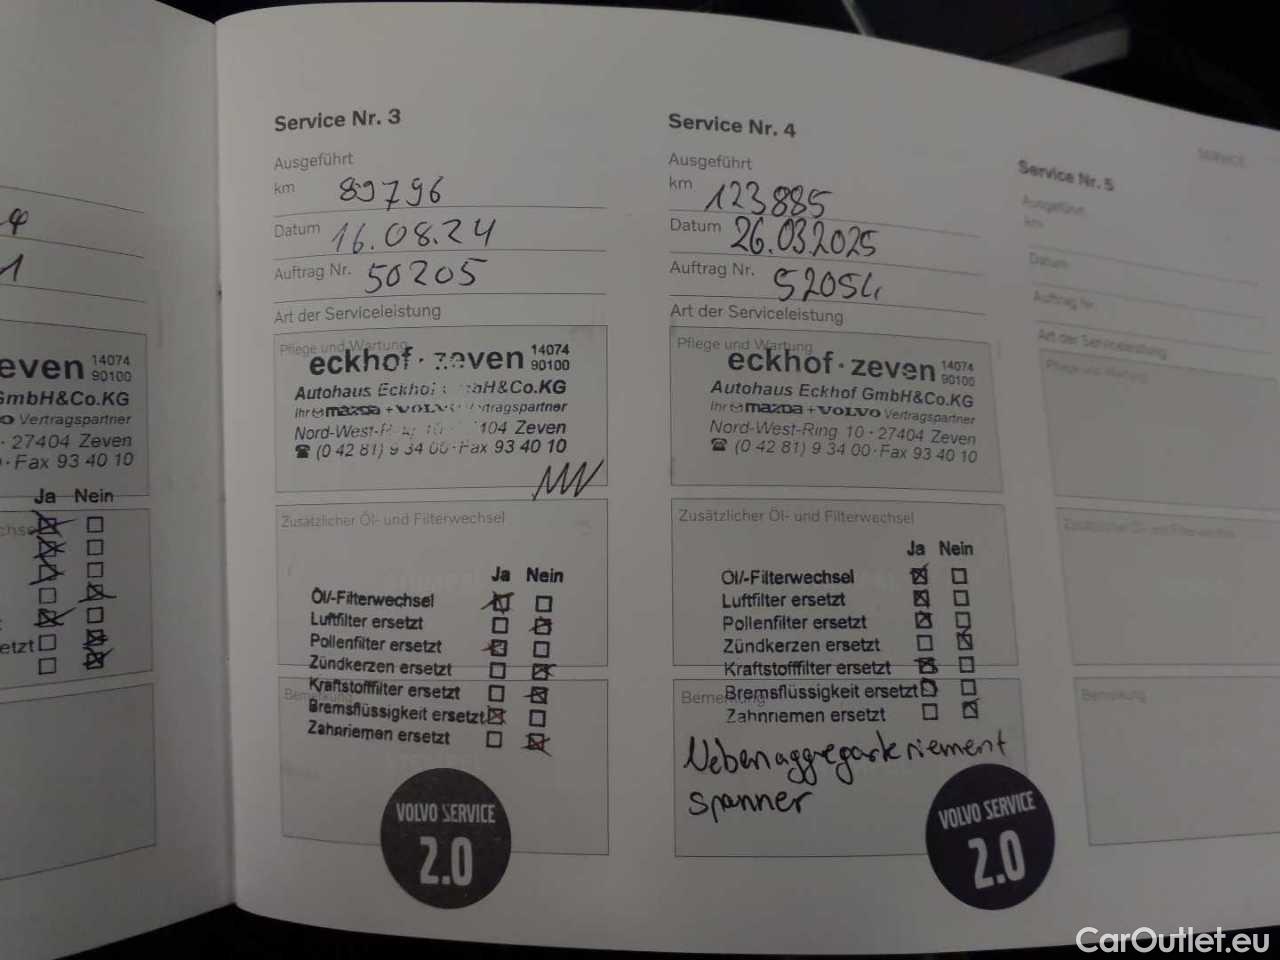 1
zeven 14074
90100
GmbH&Co.KG
VO Vertragspartner
· 27404 Zeven
· Fax 93 40 10
Ja Nein
Service Nr. 3
Ausgeführt
km 89796
Datum 16.08.24
Auftrag Nr. 50205
Art der Serviceleistung
Pflege und Wartung
eckhof · zeven 14074
90100
Autohaus Eckhof GmbH&Co.KG
Ihr mazda + VOLVO Vertragspartner
Nord-West-Ring 10 · 27404 Zeven
☎ (0 42 81) 9 34 00 · Fax 93 40 10
Zusätzlicher Öl- und Filterwechsel
Ja Nein
Öl/-Filterwechsel
Luftfilter ersetzt
Pollenfilter ersetzt
Zündkerzen ersetzt
Kraftstofffilter ersetzt
Bemerkung
Bremsflüssigkeit ersetzt
Zahnriemen ersetzt
VOLVO SERVICE
2.0
Service Nr. 4
Ausgeführt
km 123885
Datum 26.03.2025
Auftrag Nr. 52054
Art der Serviceleistung
Pflege und Wartung
eckhof · zeven 14074
90100
Autohaus Eckhof GmbH&Co.KG
Ihr mazda + VOLVO Vertragspartner
Nord-West-Ring 10 · 27404 Zeven
☎ (0 42 81) 9 34 00 · Fax 93 40 10
Zusätzlicher Öl- und Filterwechsel
Ja Nein
Öl/-Filterwechsel
Luftfilter ersetzt
Pollenfilter ersetzt
Zündkerzen ersetzt
Kraftstofffilter ersetzt
Bemerkung
Bremsflüssigkeit ersetzt
Zahnriemen ersetzt
Nebenaggregatkriement
spanner
VOLVO SERVICE
2.0
SERVICE
Service Nr. 5
Ausgeführt
km
Datum
Auftrag Nr.
Art der Serviceleistung
Pflege und Wartung
Zusätzlicher Öl- und Filterwechsel
Bemerkung
CarOutlet.eu